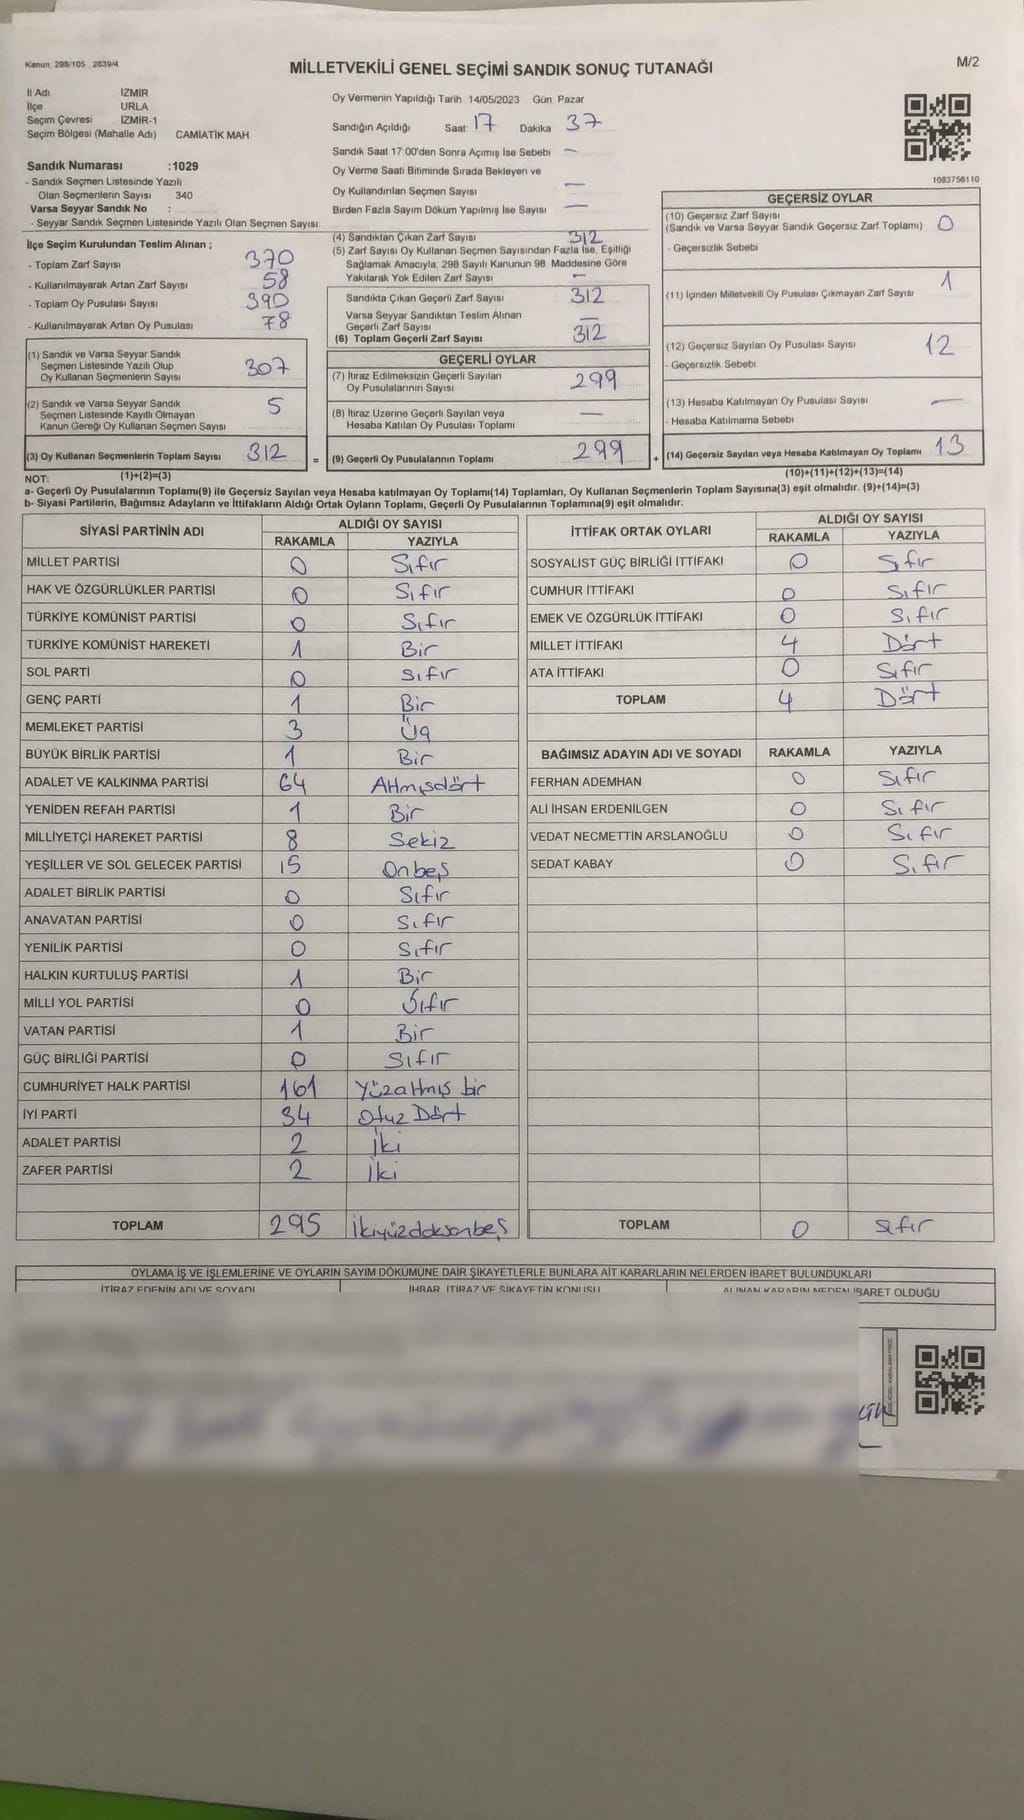 Kanun, 298/105 2839/4
MİLLETVEKİLİ GENEL SEÇİMİ SANDIK SONUÇ TUTANAĞI
M/2
İl Adı İZMİR
İlçe URLA
Seçim Çevresi İZMİR-1
Seçim Bölgesi (Mahalle Adı) CAMİATİK MAH
Sandık Numarası :1029
- Sandık Seçmen Listesinde Yazılı
Olan Seçmenlerin Sayısı 340
Varsa Seyyar Sandık No :
- Seyyar Sandık Seçmen Listesinde Yazılı Olan Seçmen Sayısı:
Oy Vermenin Yapıldığı Tarih 14/05/2023 Gün Pazar
Sandığın Açıldığı Saat: 17 Dakika 37
Sandık Saat 17:00'den Sonra Açımış İse Sebebi —
Oy Verme Saati Bitiminde Sırada Bekleyen ve
Oy Kullandırılan Seçmen Sayısı —
Birden Fazla Sayım Döküm Yapılmış İse Sayısı —
1083758110
İlçe Seçim Kurulundan Teslim Alınan ;
- Toplam Zarf Sayısı 370
- Kullanılmayarak Artan Zarf Sayısı 58
- Toplam Oy Pusulası Sayısı 390
- Kullanılmayarak Artan Oy Pusulası 78
(1) Sandık ve Varsa Seyyar Sandık
Seçmen Listesinde Yazılı Olup
Oy Kullanan Seçmenlerin Sayısı 307
(2) Sandık ve Varsa Seyyar Sandık
Seçmen Listesinde Kayıtlı Olmayan
Kanun Gereği Oy Kullanan Seçmen Sayısı 5
(3) Oy Kullanan Seçmenlerin Toplam Sayısı 312 =
(1)+(2)=(3)
(4) Sandıktan Çıkan Zarf Sayısı 312
(5) Zarf Sayısı Oy Kullanan Seçmen Sayısından Fazla İse, Eşitliği
Sağlamak Amacıyla, 298 Sayılı Kanunun 98. Maddesine Göre
Yakılarak Yok Edilen Zarf Sayısı —
Sandıkta Çıkan Geçerli Zarf Sayısı 312
Varsa Seyyar Sandıktan Teslim Alınan
Geçerli Zarf Sayısı —
(6) Toplam Geçerli Zarf Sayısı 312
GEÇERLİ OYLAR
(7) İtiraz Edilmeksizin Geçerli Sayılan
Oy Pusulalarının Sayısı 299
(8) İtiraz Üzerine Geçerli Sayılan veya
Hesaba Katılan Oy Pusulası Toplamı —
(9) Geçerli Oy Pusulalarının Toplamı 299 +
GEÇERSİZ OYLAR
(10) Geçersiz Zarf Sayısı
(Sandık ve Varsa Seyyar Sandık Geçersiz Zarf Toplamı) 0
- Geçersizlik Sebebi
(11) İçinden Milletvekili Oy Pusulası Çıkmayan Zarf Sayısı 1
(12) Geçersiz Sayılan Oy Pusulası Sayısı 12
- Geçersizlik Sebebi
(13) Hesaba Katılmayan Oy Pusulası Sayısı —
- Hesaba Katılmama Sebebi
(14) Geçersiz Sayılan veya Hesaba Katılmayan Oy Toplamı 13
(10)+(11)+(12)+(13)=(14)
NOT:
a- Geçerli Oy Pusulalarının Toplamı(9) ile Geçersiz Sayılan veya Hesaba katılmayan Oy Toplamı(14) Toplamları, Oy Kullanan Seçmenlerin Toplam Sayısına(3) eşit olmalıdır. (9)+(14)=(3)
b- Siyasi Partilerin, Bağımsız Adayların ve İttifakların Aldığı Ortak Oyların Toplamı, Geçerli Oy Pusulalarının Toplamına(9) eşit olmalıdır.
SİYASİ PARTİNİN ADI ALDIĞI OY SAYISI
RAKAMLA YAZIYLA
MİLLET PARTİSİ 0 Sıfır
HAK VE ÖZGÜRLÜKLER PARTİSİ 0 Sıfır
TÜRKİYE KOMÜNİST PARTİSİ 0 Sıfır
TÜRKİYE KOMÜNİST HAREKETİ 1 Bir
SOL PARTİ 0 Sıfır
GENÇ PARTİ 1 Bir
MEMLEKET PARTİSİ 3 Üç
BÜYÜK BİRLİK PARTİSİ 1 Bir
ADALET VE KALKINMA PARTİSİ 64 Altmışdört
YENİDEN REFAH PARTİSİ 1 Bir
MİLLİYETÇİ HAREKET PARTİSİ 8 Sekiz
YEŞİLLER VE SOL GELECEK PARTİSİ 15 Onbeş
ADALET BİRLİK PARTİSİ 0 Sıfır
ANAVATAN PARTİSİ 0 Sıfır
YENİLİK PARTİSİ 0 Sıfır
HALKIN KURTULUŞ PARTİSİ 1 Bir
MİLLİ YOL PARTİSİ 0 Sıfır
VATAN PARTİSİ 1 Bir
GÜÇ BİRLİĞİ PARTİSİ 0 Sıfır
CUMHURİYET HALK PARTİSİ 161 Yüzaltmış bir
İYİ PARTİ 34 Otuz Dört
ADALET PARTİSİ 2 İki
ZAFER PARTİSİ 2 İki
TOPLAM 295 İkiyüzdoksanbeş
İTTİFAK ORTAK OYLARI ALDIĞI OY SAYISI
RAKAMLA YAZIYLA
SOSYALİST GÜÇ BİRLİĞİ İTTİFAKI 0 Sıfır
CUMHUR İTTİFAKI 0 Sıfır
EMEK VE ÖZGÜRLÜK İTTİFAKI 0 Sıfır
MİLLET İTTİFAKI 4 Dört
ATA İTTİFAKI 0 Sıfır
TOPLAM 4 Dört
BAĞIMSIZ ADAYIN ADI VE SOYADI RAKAMLA YAZIYLA
FERHAN ADEMHAN 0 Sıfır
ALİ İHSAN ERDENİLGEN 0 Sıfır
VEDAT NECMETTİN ARSLANOĞLU 0 Sıfır
SEDAT KABAY 0 Sıfır
TOPLAM 0 Sıfır
OYLAMA İŞ VE İŞLEMLERİNE VE OYLARIN SAYIM DÖKÜMÜNE DAİR ŞİKAYETLERLE BUNLARA AİT KARARLARIN NELERDEN İBARET BULUNDUKLARI
İTİRAZ EDENİN ADI VE SOYADI İHBAR, İTİRAZ VE ŞİKAYETİN KONUSU ALINAN KARARIN NEDEN İBARET OLDUĞU